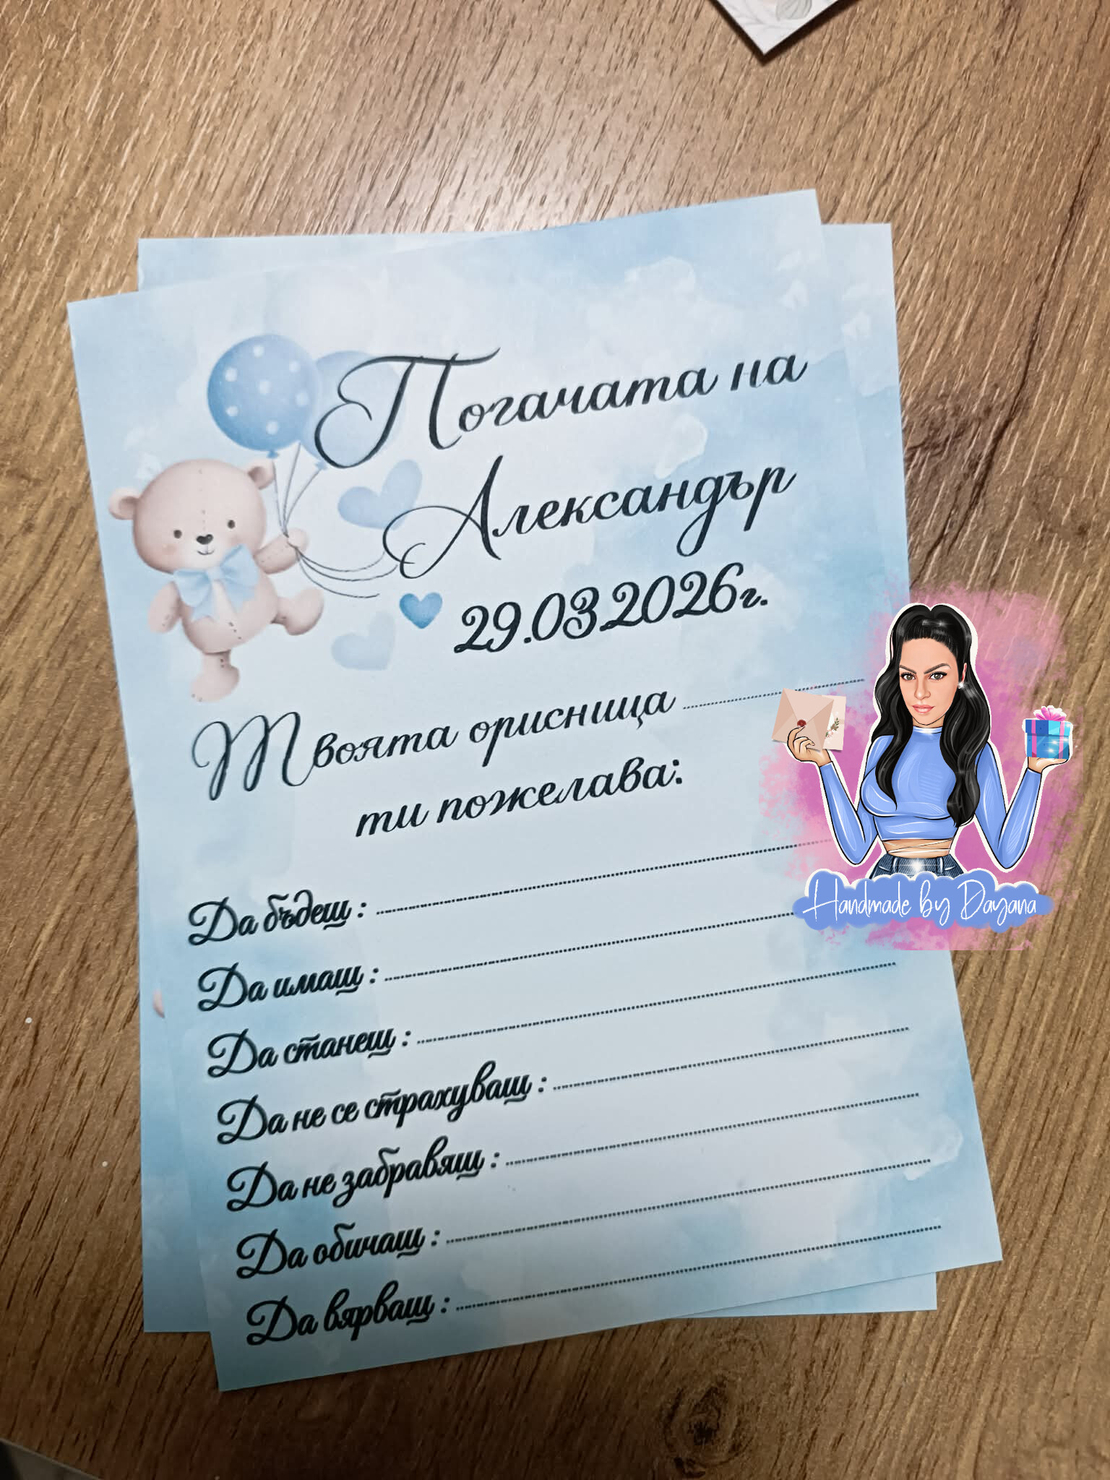 Погачата на
Александър
29.03.2026г.
Твоята орисница ....................
ти пожелава:
Да бъдеш : ....................
Да имаш : ....................
Да станеш : ....................
Да не се страхуваш : ....................
Да не забравяш : ....................
Да обичаш : ....................
Да вярваш : ....................
Handmade by Dayana